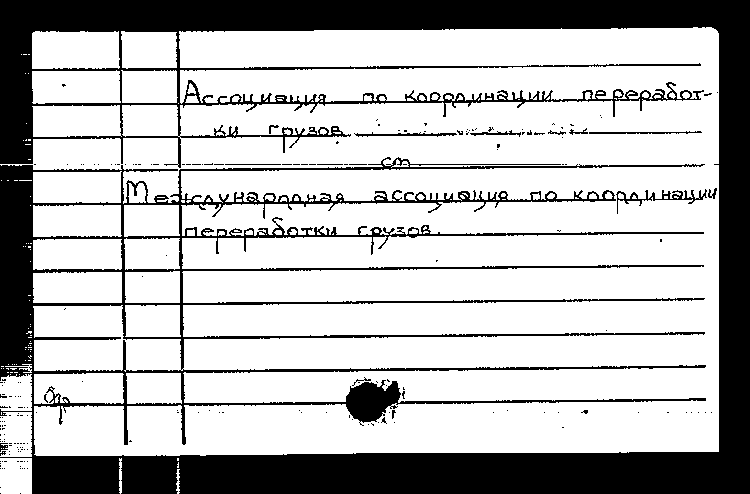 Ассоциация по координации переработ-
ки грузов
см
Международная ассоциация по координации
переработки грузов.